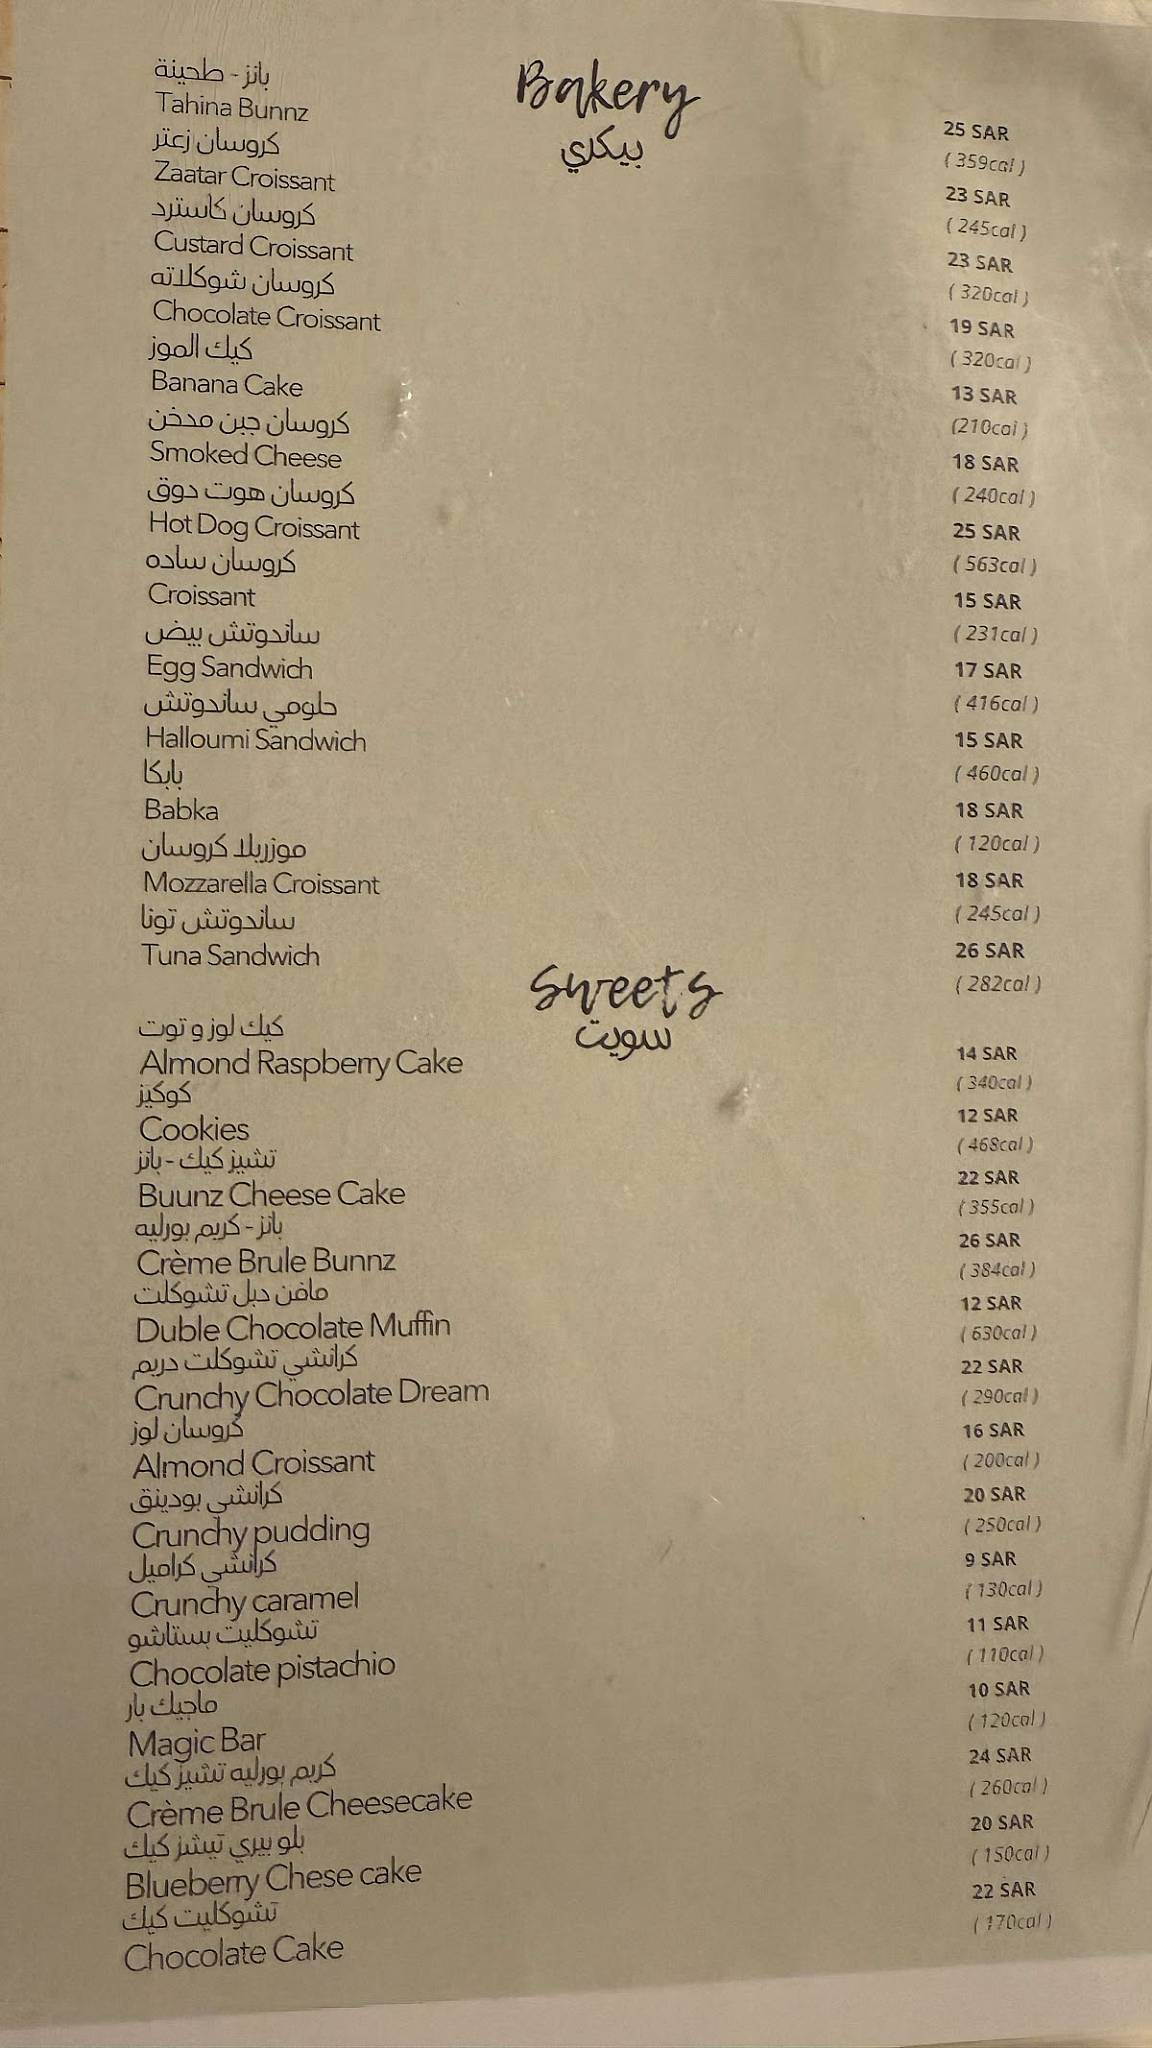 Bakery
بيكري
بانز - طحينة
Tahina Bunnz
25 SAR
( 359cal )
كروسان زعتر
Zaatar Croissant
23 SAR
( 245cal )
كروسان كاسترد
Custard Croissant
23 SAR
( 320cal )
كروسان شوكلاته
Chocolate Croissant
19 SAR
( 320cal )
كيك الموز
Banana Cake
13 SAR
(210cal )
كروسان جبن مدخن
Smoked Cheese
18 SAR
( 240cal )
كروسان هوت دوق
Hot Dog Croissant
25 SAR
( 563cal )
كروسان ساده
Croissant
15 SAR
( 231cal )
ساندوتش بيض
Egg Sandwich
17 SAR
( 416cal )
حلومي ساندوتش
Halloumi Sandwich
15 SAR
( 460cal )
بابكا
Babka
18 SAR
( 120cal )
موزريلا كروسان
Mozzarella Croissant
18 SAR
( 245cal )
ساندوتش تونا
Tuna Sandwich
26 SAR
( 282cal )
Sweets
سويت
كيك لوز و توت
Almond Raspberry Cake
14 SAR
( 340cal )
كوكيز
Cookies
12 SAR
( 468cal )
تشيز كيك - بانز
Buunz Cheese Cake
22 SAR
( 355cal )
بانز - كريم بورليه
Crème Brule Bunnz
26 SAR
( 384cal )
مافن دبل تشوكلت
Duble Chocolate Muffin
12 SAR
( 630cal )
كرانشي تشوكلت دريم
Crunchy Chocolate Dream
22 SAR
( 290cal )
كروسان لوز
Almond Croissant
16 SAR
( 200cal )
كرانشي بودينق
Crunchy pudding
20 SAR
( 250cal )
كرانشي كراميل
Crunchy caramel
9 SAR
( 130cal )
تشوكليت بستاشو
Chocolate pistachio
11 SAR
( 110cal )
ماجيك بار
Magic Bar
10 SAR
( 120cal )
كريم بورليه تشيز كيك
Crème Brule Cheesecake
24 SAR
( 260cal )
بلو بيري تيشز كيك
Blueberry Chese cake
20 SAR
( 150cal )
تشوكليت كيك
Chocolate Cake
22 SAR
( 170cal )